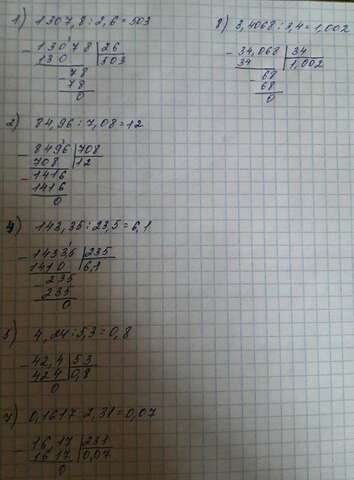 1) 1307,8 : 2,6 = 503
- 13078 | 26
130 | 503
- 78
78
0
2) 84,96 : 7,08 = 12
- 8496 | 708
708 | 12
- 1416
1416
0
143,35 : 23,5 = 6,1
- 1433,5 | 235
1410 | 6,1
- 235
235
0
5) 4,24 : 5,3 = 0,8
- 42,4 | 53
42 4 | 0,8
0
7) 0,1617 : 2,31 = 0,07
- 16,17 | 231
16 17 | 0,07
0
8) 3,4068 : 3,4 = 1,002
- 34,068 | 34
34 | 1,002
- 68
68
0